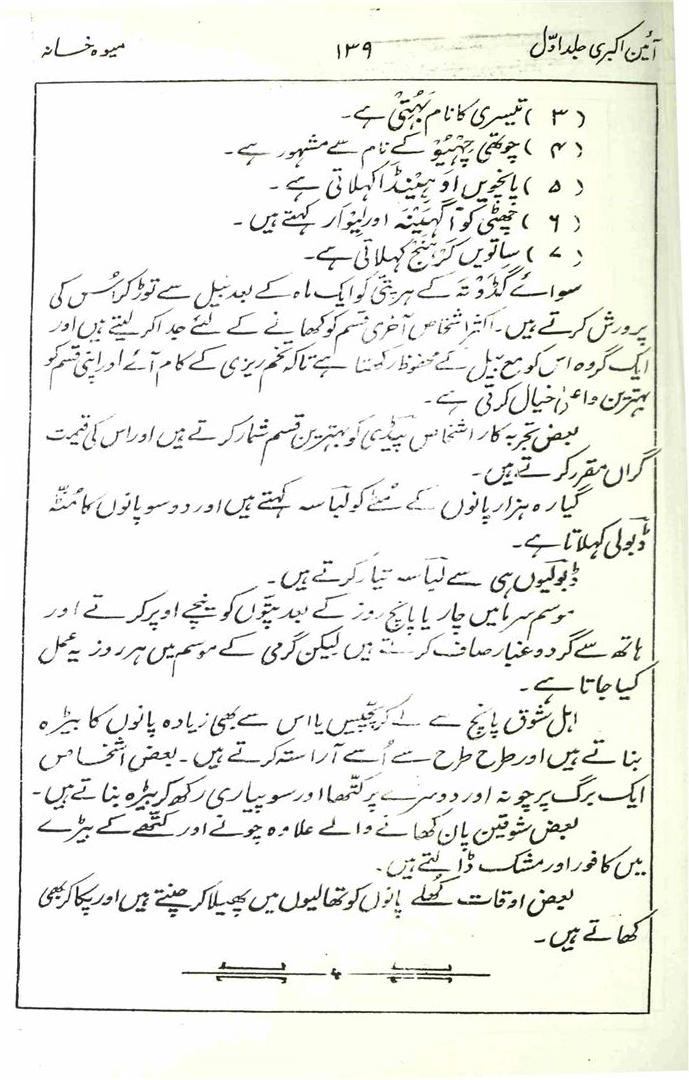 آئین اکبری جلد اوّل ۱۳۹ میوہ خانہ
( ۳ ) تیسری کا نام بَہُتِیْ ہے۔
( ۴ ) چوتھی چِھْیُو کے نام سے مشہور ہے۔
( ۵ ) پانچویں اَوْہِیْنْڈَا کہلاتی ہے۔
( ۶ ) چھٹی کو اَگَہَیْنَہ اور لیوار کہتے ہیں۔
( ۷ ) ساتویں کَرْہَنْج کہلاتی ہے۔
سوائے گَڈَوْتَہ کے ہر پتّی کو ایک ماہ کے بعد بیل سے توڑ کر اُس کی
پرورش کرتے ہیں۔ اکثر اشخاص آخری قسم کو کھانے کے لئے جدا کر لیتے ہیں اور
ایک گروہ اس کو مع بیل کے محفوظ رکھتا ہے تاکہ تخم ریزی کے کام آئے اور اپنی قسم کو
بہترین و اعلیٰ خیال کرتی ہے۔
بعض تجربہ کار اشخاص پیڑی کو بہترین قسم شمار کرتے ہیں اور اس کی قیمت
گراں مقرر کرتے ہیں۔
گیارہ ہزار پانوں کے مُٹھے کو لباسہ کہتے ہیں اور دو سو پانوں کا مُٹھّا
ڈہولی کہلاتا ہے۔
ڈہولیوں ہی سے لباسہ تیار کرتے ہیں۔
موسم سرما میں چار یا پانچ روز کے بعد پتّوں کو نیچے اوپر کرتے اور
ہاتھ سے گرد و غبار صاف کرتے ہیں لیکن گرمی کے موسم میں ہر روز یہ عمل
کیا جاتا ہے۔
اہل شوق پانچ سے لے کر پچّیس یا اس سے بھی زیادہ پانوں کا بیڑہ
بناتے ہیں اور طرح طرح سے اُسے آراستہ کرتے ہیں۔ بعض اشخاص
ایک برگ پر چونہ اور دوسرے پر کتّھا اور سوپیاری رکھ کر بیڑہ بناتے ہیں۔
بعض شوقین پان کھانے والے علاوہ چونے اور کتّھے کے بیڑے
میں کافور اور مشک ڈالتے ہیں۔
بعض اوقات کُھلے پانوں کو تھالیوں میں پھیلا کر چنتے ہیں اور پکا کر بھی
کھاتے ہیں۔